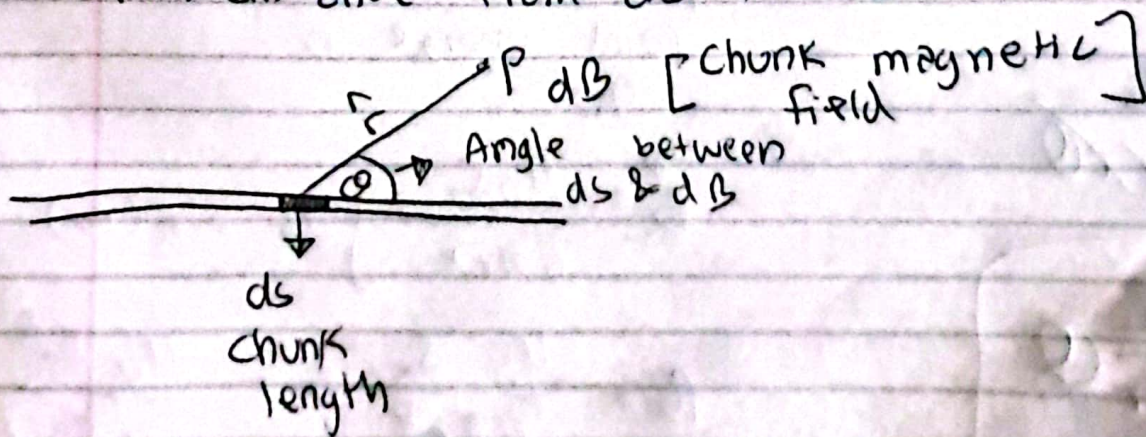 r
P dB [Chunk magnetic]
field
θ Angle between
ds & dB
ds
Chunk
length